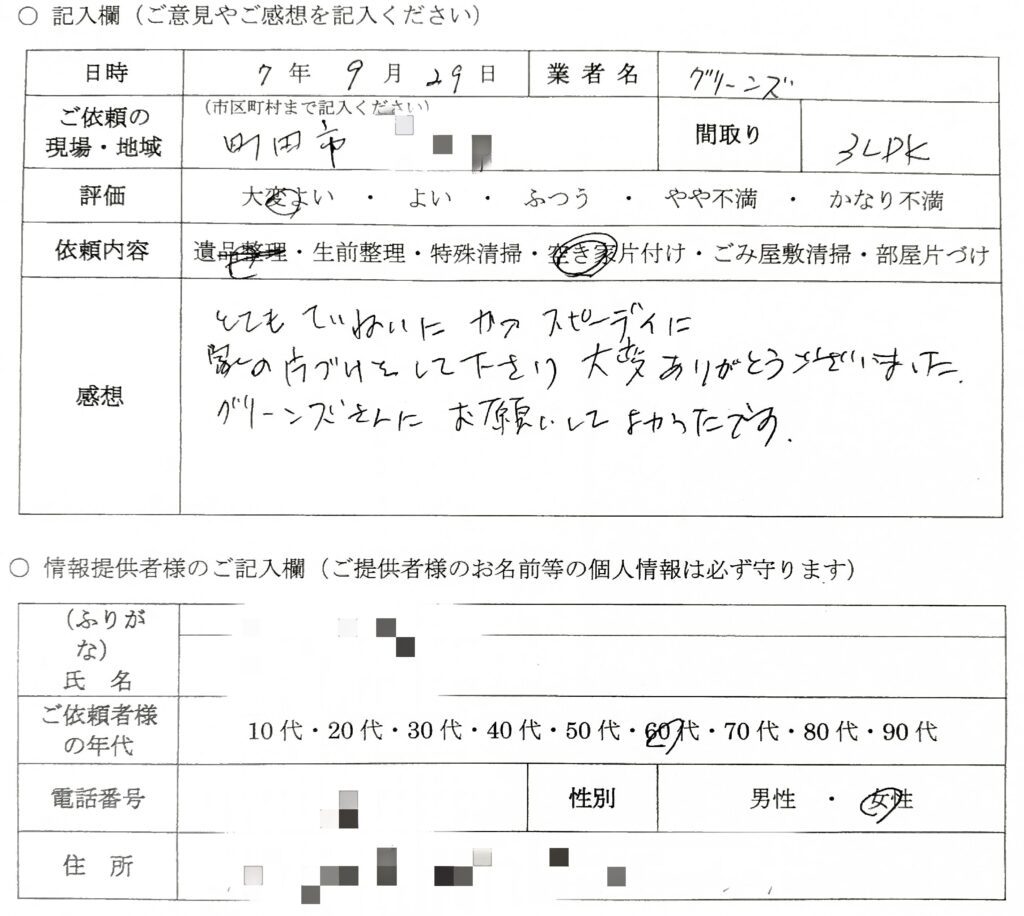 ○ 記入欄（ご意見やご感想を記入ください）
日時 7年 9月 29日 業者名 グリーンズ
ご依頼の現場・地域 （市区町村まで記入ください） 町田市 間取り 3LDK
評価 大変よい ・ よい ・ ふつう ・ やや不満 ・ かなり不満
依頼内容 遺品整理・生前整理・特殊清掃・空き家片付け・ごみ屋敷清掃・部屋片づけ
感想
とても ていねいに かつ スピーディに
家の片づけをして下さり 大変ありがとうございました.
グリーンズさんに お願いして よかったです.
○ 情報提供者様のご記入欄（ご提供者様のお名前等の個人情報は必ず守ります）
（ふりがな）
氏 名
ご依頼者様の年代 10代・20代・30代・40代・50代・60代・70代・80代・90代
電話番号 性別 男性 ・ 女性
住 所